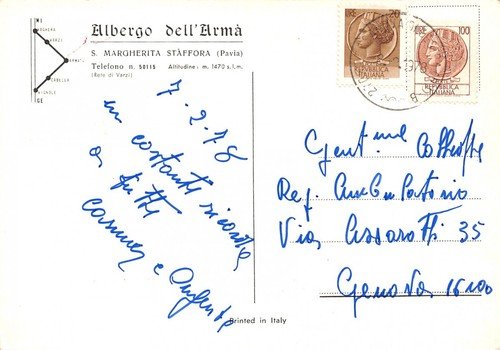 MI
VOGHERA
VARZI
ARMÀ
GE
Albergo dell'Armà
S. MARGHERITA STÀFFORA (Pavia)
Telefono n. 50115 Altitudine: m. 1470 s.l.m.
(Rete di Varzi)
LIRE
100
REPUBBLICA
ITALIANA
7.2.78
un costante ricordo
a tutte
Carmen e Augusto
Gent.me Colleghe
Rep. Ambulatorio
Via Assarotti 35
Genova 16100
Printed in Italy